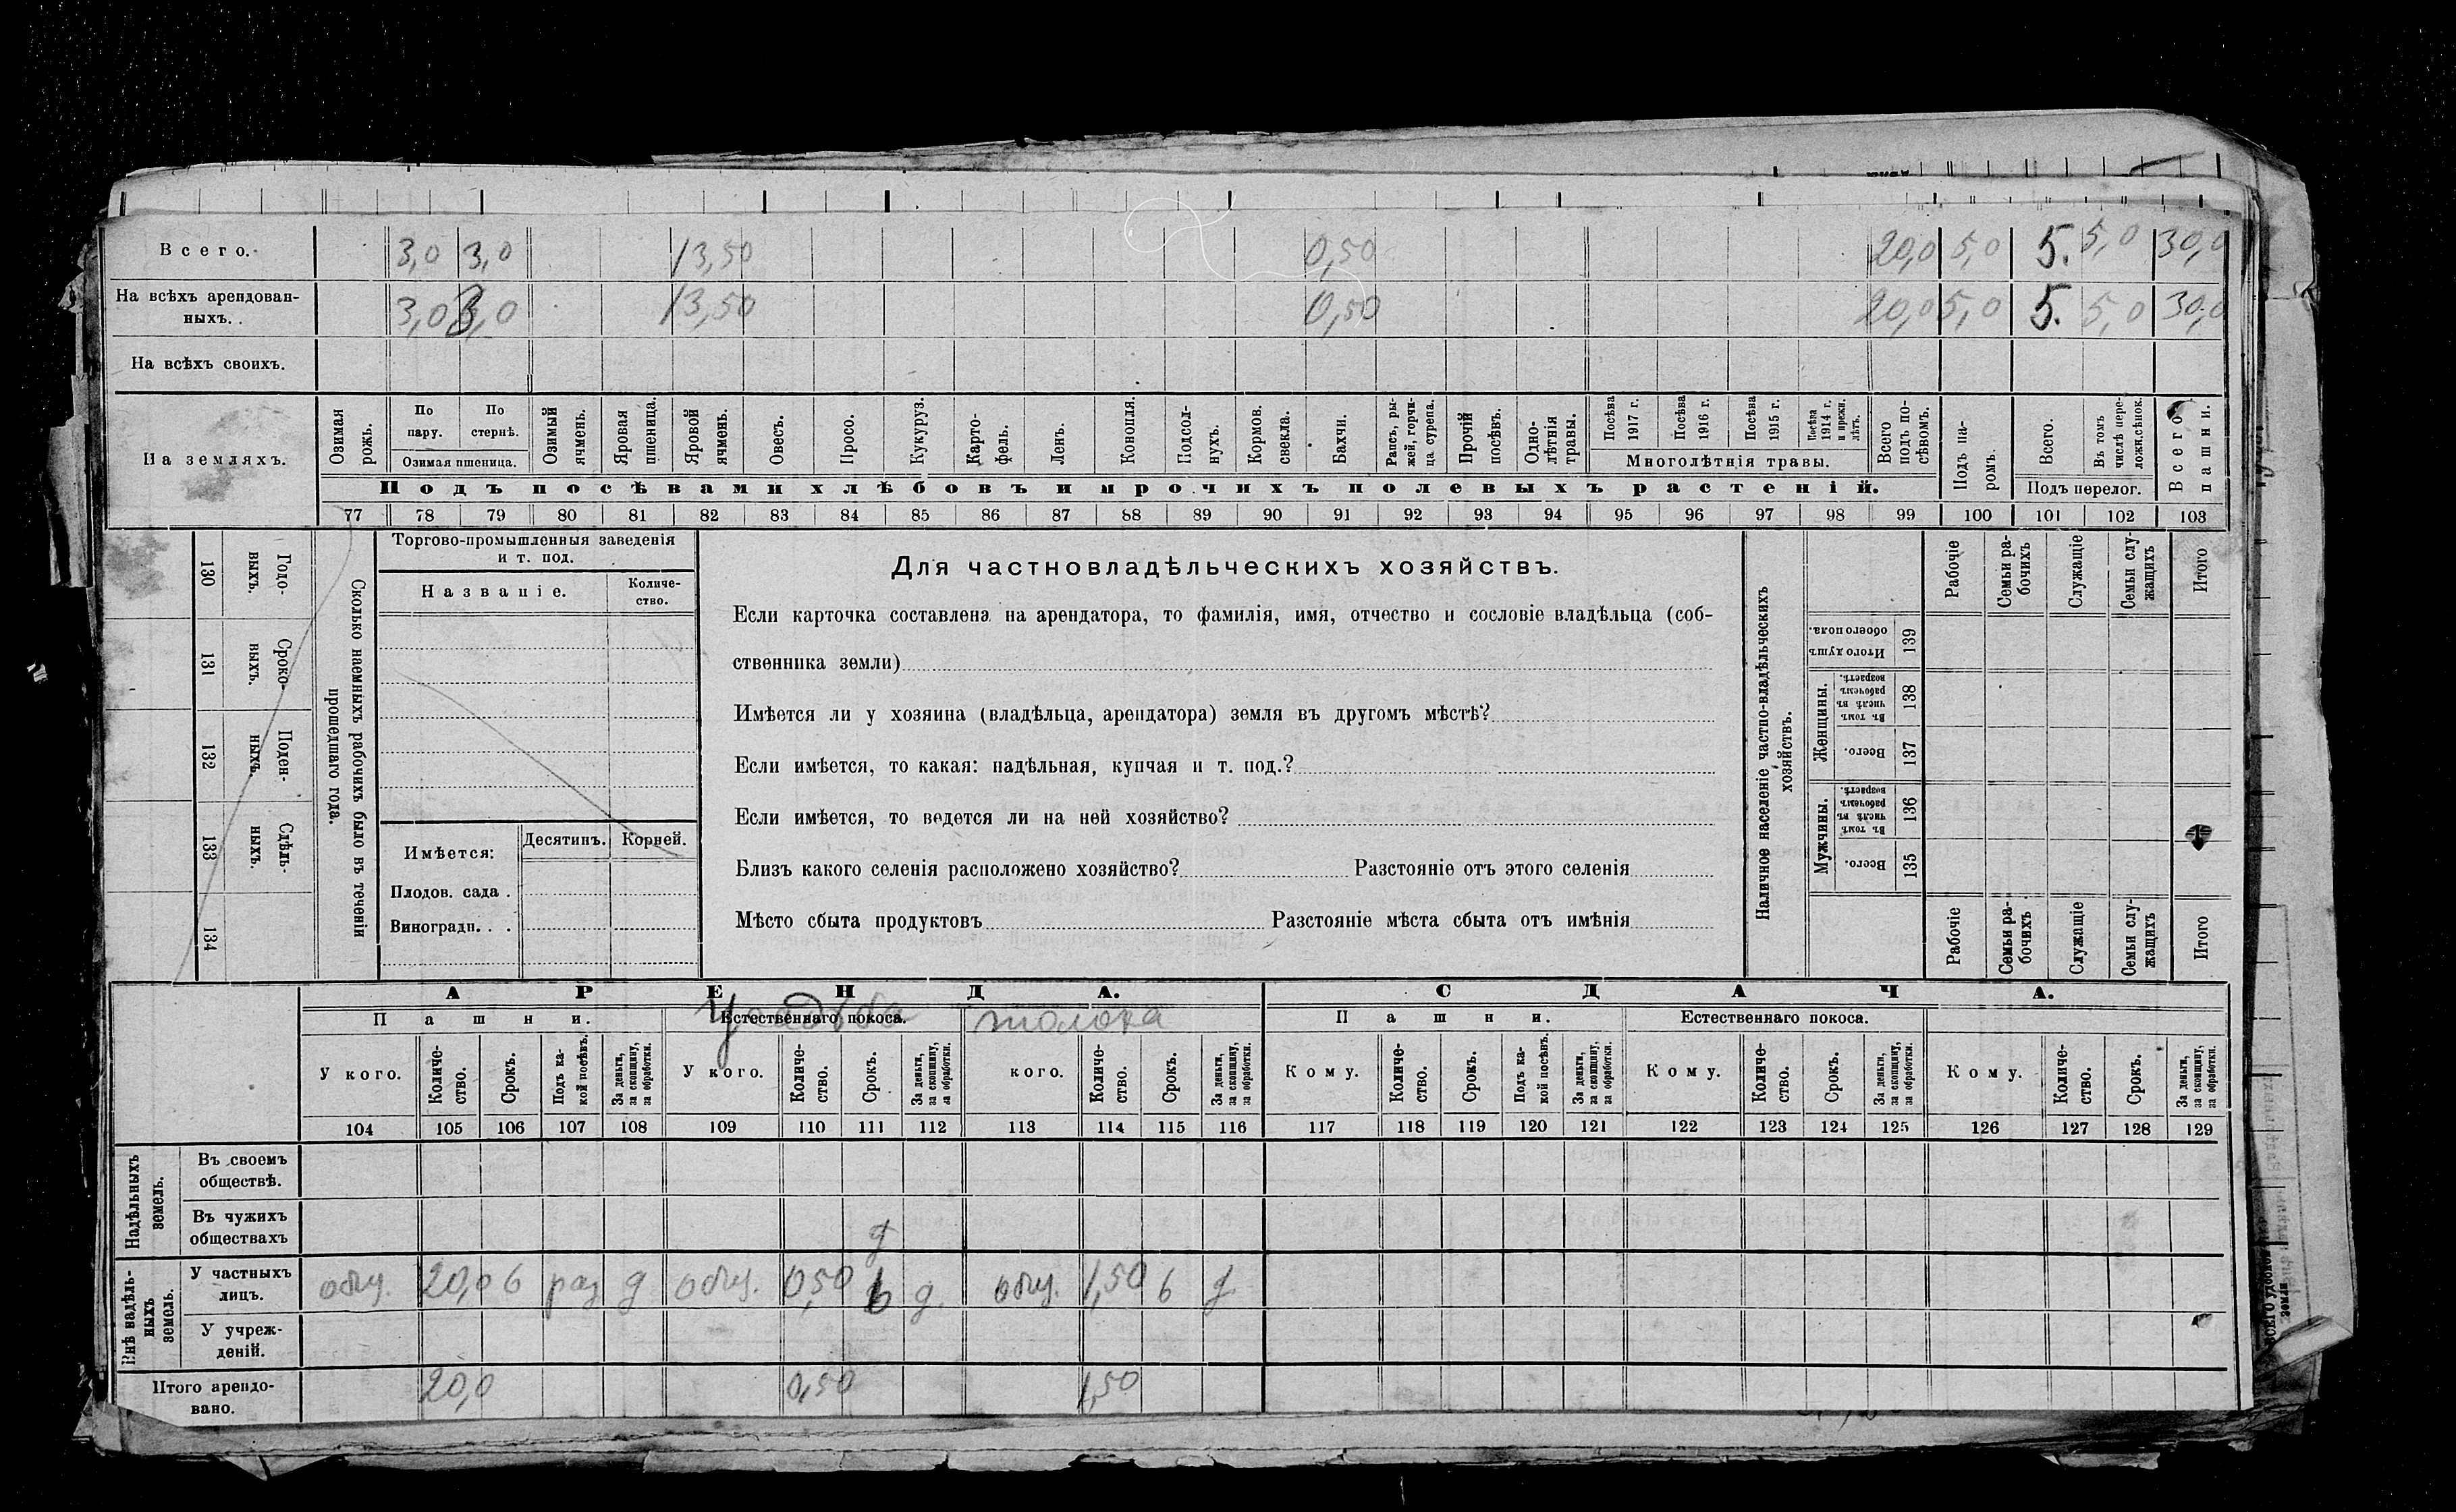 Всего. 3,0 3,0 13,50 0,50 20,0 5,0 5. 5,0 30,0
На всѣхъ арендован-
ныхъ. . 3,0 3,0 13,50 0,50 20,0 5,0 5. 5,0 30,0
На всѣхъ своихъ.
На земляхъ.
Озимая рожь.
По пару.
По стернѣ.
Озимая пшеница.
Озимый ячмень.
Яровая пшеница.
Яровой ячмень.
Овесъ.
Просо.
Кукуруз.
Карто-фель.
Ленъ.
Конопля.
Подсол-нухъ.
Кормов. свекла.
Бахчи.
Рапсъ, ры-жей, горчи-ца сурепа.
Прочій посѣвъ.
Одно-лѣтнія травы.
Посѣва 1917 г.
Посѣва 1916 г.
Посѣва 1915 г.
Посѣва 1914 г. и прежн. лѣтъ.
Многолѣтнія травы.
Всего подъ по-сѣвомъ.
Подъ па-ромъ.
Всего.
Въ томъ числѣ пере-ложн.сѣнок.
Подъ перелог.
Всего пашни.
Подъ посѣвами хлѣбовъ и прочихъ полевыхъ растеній.
77 78 79 80 81 82 83 84 85 86 87 88 89 90 91 92 93 94 95 96 97 98 99 100 101 102 103
130 Годо-выхъ.
131 Сроко-выхъ.
132 Поден-ныхъ.
133 Сдѣль-ныхъ.
134
Сколько наемныхъ рабочихъ было въ теченіи
прошедшаго года.
Торгово-промышленныя заведенія
и т. под.
Названіе. Количе-ство.
Имѣется: Десятинъ. Корней.
Плодов. сада .
Виноградн. . .
Для частновладѣльческихъ хозяйствъ.
Если карточка составлена на арендатора, то фамилія, имя, отчество и сословіе владѣльца (соб-
ственника земли)
Имѣется ли у хозяина (владѣльца, арендатора) земля въ другомъ мѣстѣ?
Если имѣется, то какая: надѣльная, купчая и т. под.?
Если имѣется, то ведется ли на ней хозяйство?
Близъ какого селенія расположено хозяйство? Разстояніе отъ этого селенія
Мѣсто сбыта продуктовъ Разстояніе мѣста сбыта отъ имѣнія
Наличное населеніе частно-владѣльческихъ
хозяйствъ.
Рабочіе
Семьи ра-бочихъ
Служащіе
Семьи слу-жащихъ
Итого
Итого душъ обоего пола. 139
Женщины.
Въ томъ числѣ въ рабочемъ возрастѣ. 138
Всего. 137
Мужчины.
Въ томъ числѣ въ рабочемъ возрастѣ. 136
Всего. 135
Рабочіе
Семьи ра-бочихъ
Служащіе
Семьи слу-жащихъ
Итого
АРЕНДА. СДАЧА.
Пашни. Усадьба Естественнаго покоса. толока Пашни. Естественнаго покоса.
У кого. Количе-ство. Срокъ. Подъ ка-кой посѣвъ. За деньги, за скопщину, за обработки.
У кого. Количе-ство. Срокъ. За деньги, за скопщину, за обработки.
кого. Количе-ство. Срокъ. За деньги, за скопщину, за обработки.
Кому. Количе-ство. Срокъ. Подъ ка-кой посѣвъ. За деньги, за скопщину, за обработки.
Кому. Количе-ство. Срокъ. За деньги, за скопщину, за обработки.
Кому. Количе-ство. Срокъ. За деньги, за скопщину, за обработки.
104 105 106 107 108 109 110 111 112 113 114 115 116 117 118 119 120 121 122 123 124 125 126 127 128 129
Надѣльныхъ земель.
Въ своемъ
обществѣ.
Въ чужихъ
обществахъ
д
Внѣ надѣль-ныхъ земель.
У частныхъ
лицъ. общ. 20,0 6 раз д общ. 0,50 6 д. общ. 1,50 6 д
У учреж-
деній.
Итого арендо-
вано. 20,0 0,50 1,50